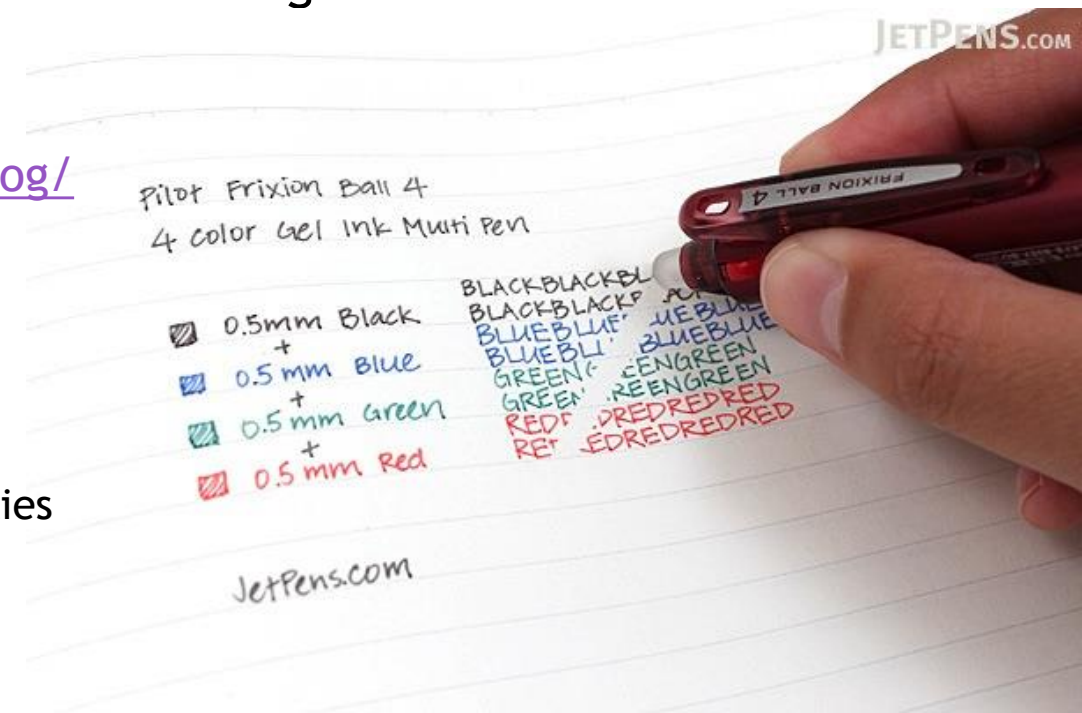 JETPENS.COM
og/
Pilot Frixion Ball 4
4 Color Gel Ink Multi Pen
FRIXION BALL 4
0.5mm Black
+
0.5mm Blue
+
0.5mm Green
+
0.5mm Red
BLACKBLACKBL
BLACKBLACK
BLUEBLUE UEBLUE
BLUEBL BLUEBLUE
GREEN EENGREEN
GREE REENGREEN
RED DREDREDRED
RE EDREDREDRED
ies
JetPens.com